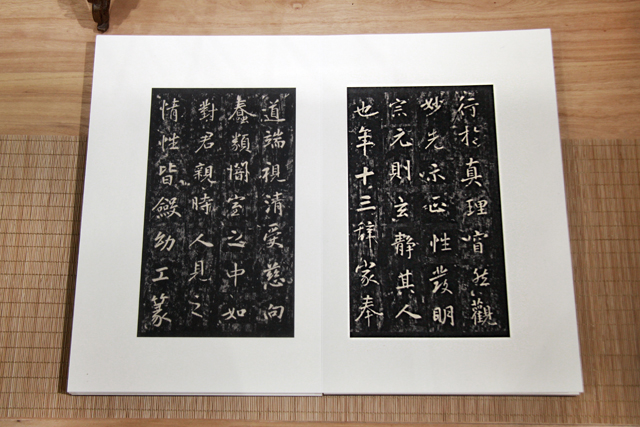 行於真理冥然觀
妙先味正性發明
宗元則玄靜其人
也年十三辞家奉
道端視清受慈向
蠢類闇室之中如
對君親時人見之
情性皆斂幼工篆